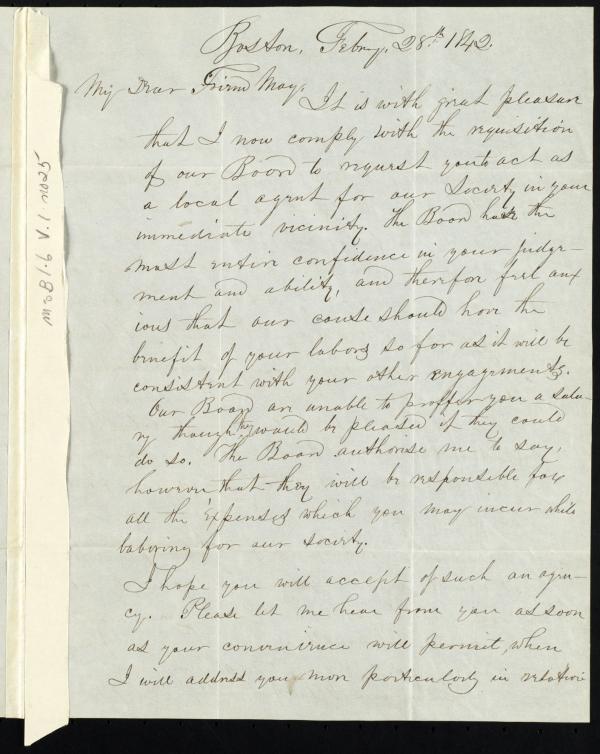 Boston, Febuy. 28th. 1842.
My Dear Friend May,
It is with great pleasure
that I now comply with the requisition
of our Board to request you to act as
a local agent for our Society in your
immediate vicinity. The Board have the
most entire confidence in your judge-
ment and ability, and therefore feel anx
ious that our cause should have the
benefit of your labors so far as it will be
consistent with your other engagements.
Our Board are unable to proffer you a sala-
ry though they would be pleased if they could
do so. The Board authorise me to say,
however that they will be responsible for
all the expenses which you may incur while
laboring for our Society.
I hope you will accept of such an agen-
cy. Please let me hear from you as soon
as your convenience will permit, when
I will address you more particularly in relation
Ms.B.1.6 v.1 no.25